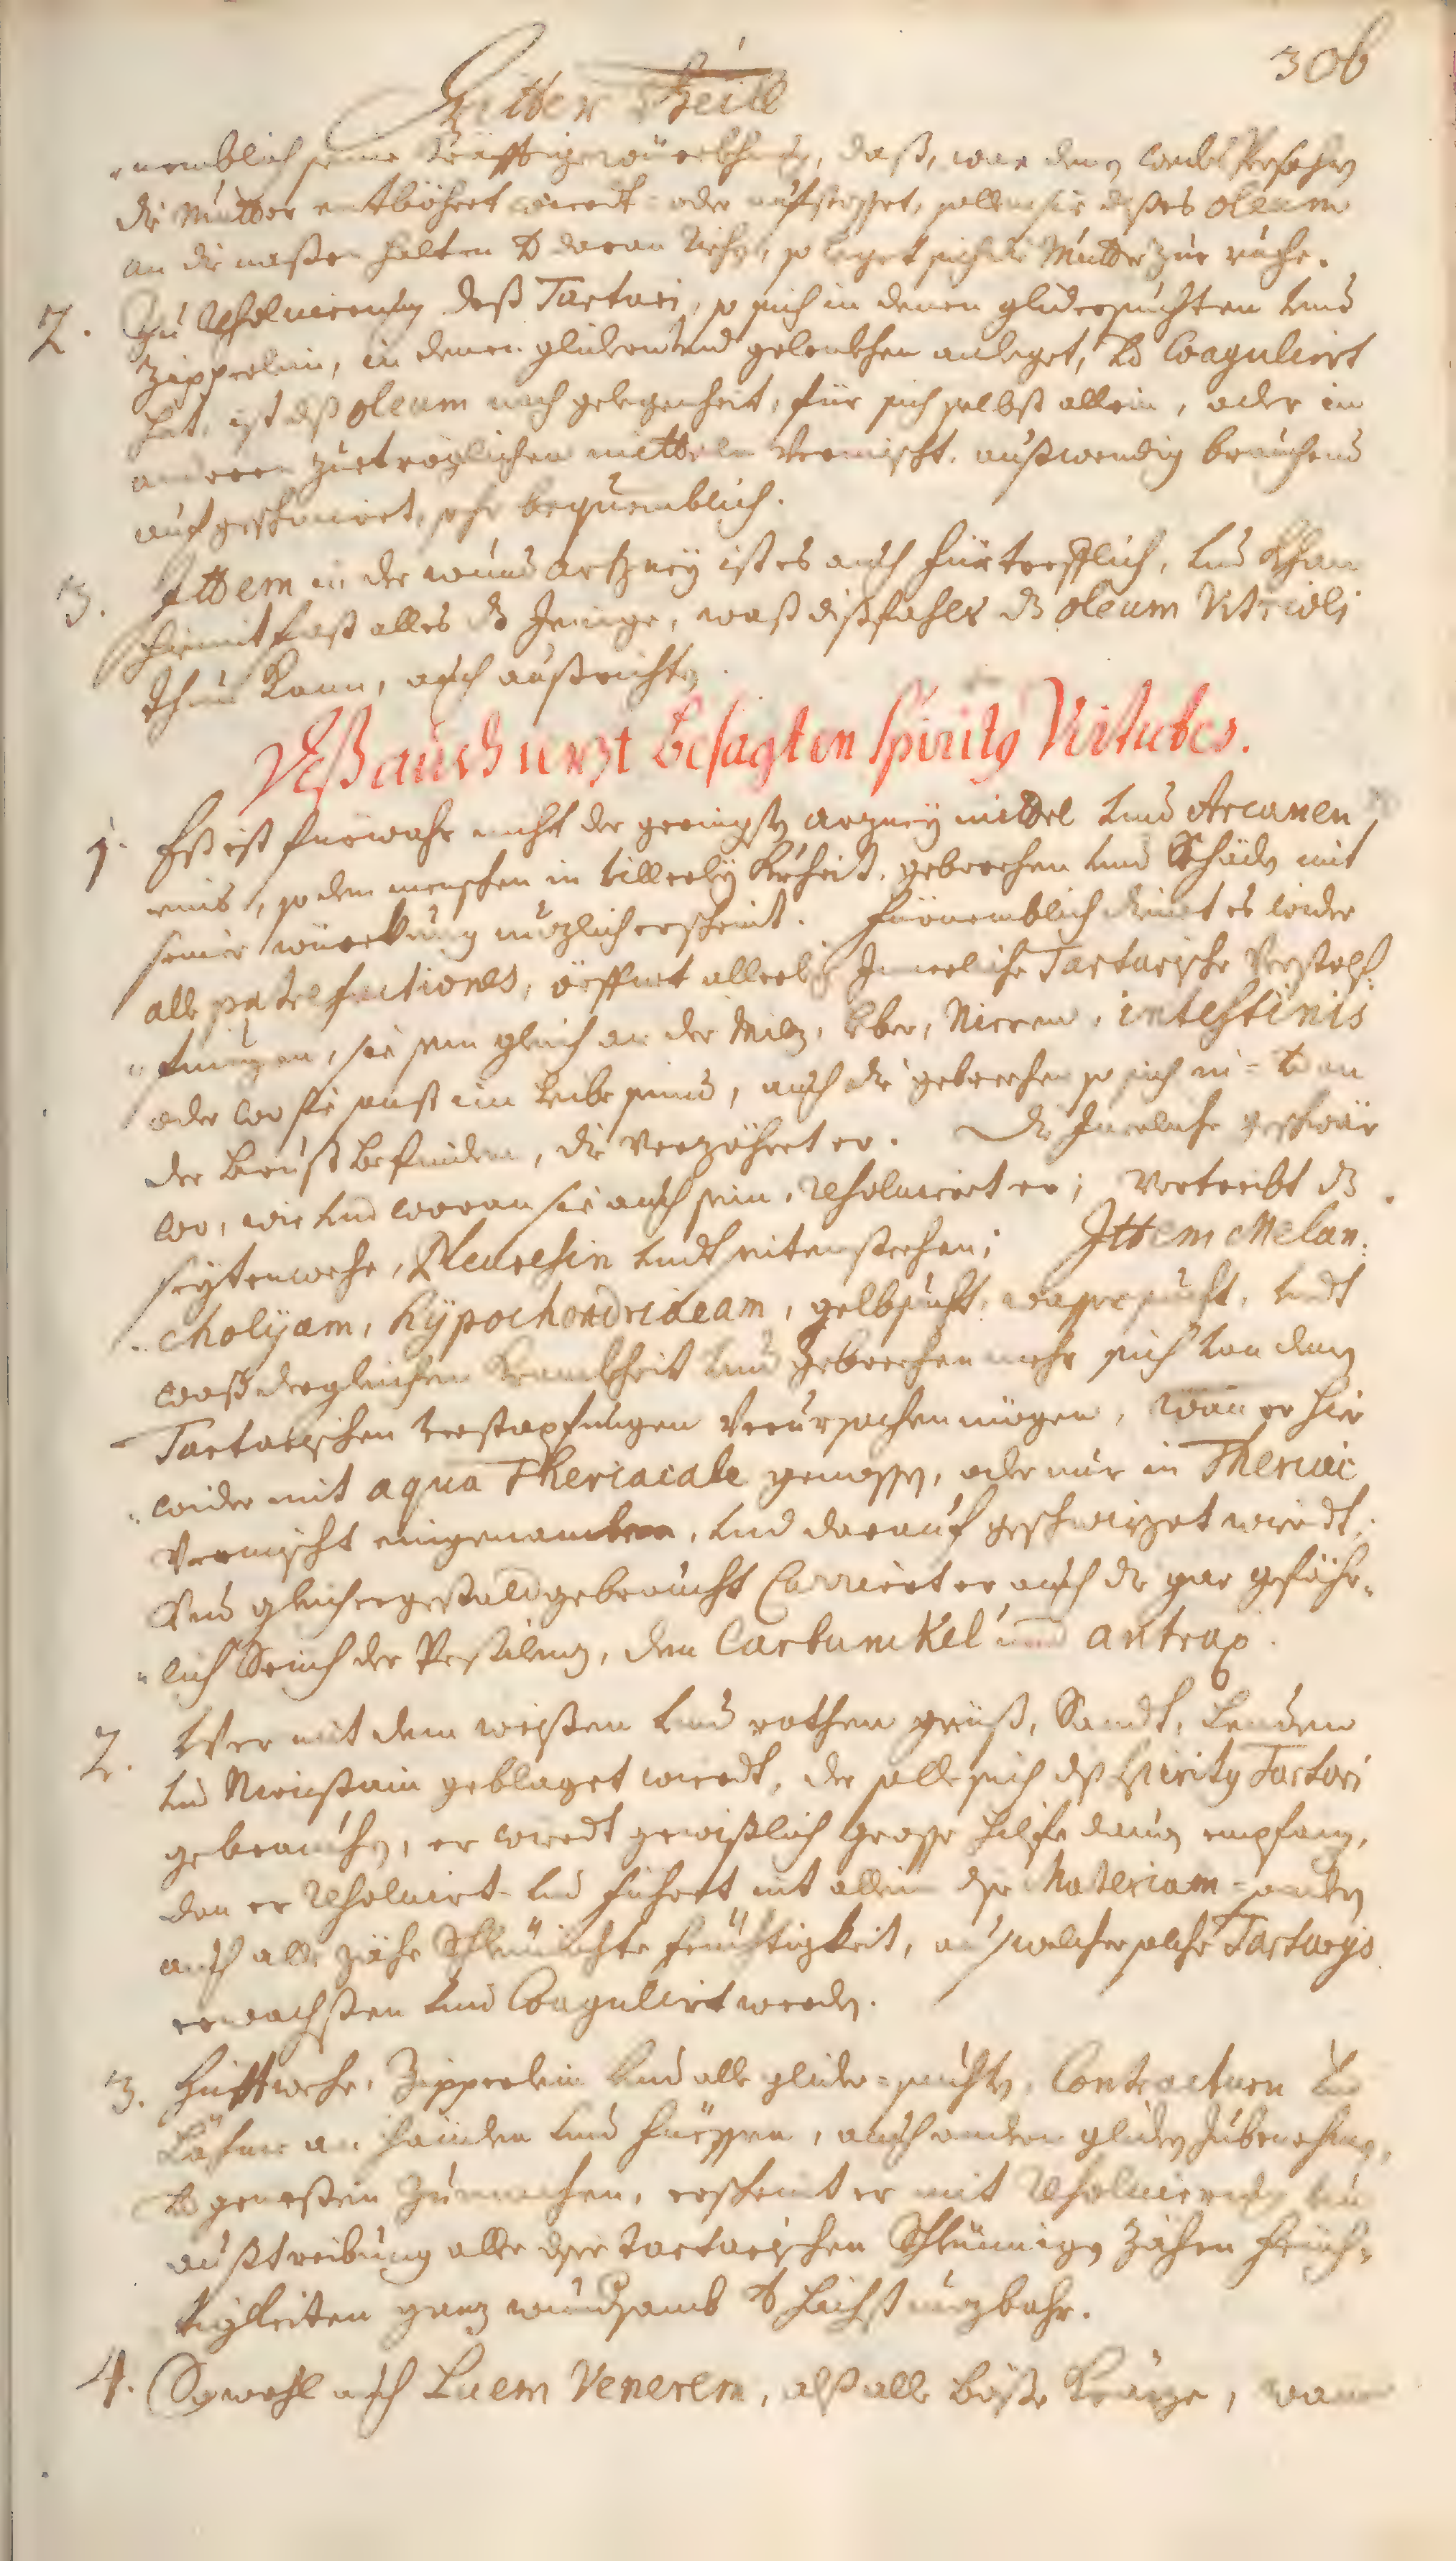 306
Dritter Theill
nemblich seine Kräfftige würckhung, daß, wan den weibs Persohn
die Mutter entböhret wierdt oder aufstosset, sollen sie dises oleum
an die nasßen halten v daran riechen, so leget sich die Mutter zur ruhe.
2. Zu Resolvierung deß Tartari, so sich in denen glidersuchten und
Zipperlein, in denen glidern und gelenckhen anleget, und Coaguliert
hat, ist diß oleum nach gelegenheit, für sich selbst allein, oder in
anderen zueträglichen mitteln Vermischt, außwendig brauchend
aufgeschmirt, sehr bequemblich.
3. Ittem in der wund artzney ist es auch fürtrefflich, und Khan
hiemit fast alles dz Jenige, waß dißfahls dz oleum Vitrioli
thun Kann, auch außrichten
Deß auch iezt besagten Spiritus Virtutes.
1. Eß ist fuerwahr nicht der geringsten arzney mittel und Arcanen
eins, so dem menschen in villerley Krheit. gebrechen und Schäden mit
seiner würckung nuzlich erscheint. Fürnemblich dienet es wider
alle putrefactiones, öffnet allerley Innerliche Tartarische Verstopf-
fungen, sie sein gleich an der Milz, Leber, Nieren, intestinis
oder wo sie sonst im Leibe seind, auch die gebrechen so sich in- v an
der Brust befinden, die Verzöhret er. Die Inerliche geschwär
wo, wie und woran sie auch sein, Resolviert er; Vertreibt dz
seytenwehe, Pleuresin und seitenstechen; Ittem Melan-
cholyam, hypochondriacam, gelbsucht, wassersucht, undt
waß dergleichen Krankheit und gebrechen mehr sich von den
Tartarischen verstopfungen Verursachen mögen, wan er hier
wider mit aqua Theriacale genossen, oder nur in Theriac
Vermischt eingenomben, und darauf geschwizet wierdt,
Und gleichergestald gebraucht Curriert er auch die gar gefähr-
lich Seich der Pestilenz, den Carbunckel und antrax.
2. Wer mit dem weissen und rothen grieß, Sandt, Lenden
und Nierstain geblaget wierdt, der solle sich deß Spiritus Tartari
gebrauchen, er wierdt gewißlich grosse hilfe davon empfang,
den er Resolviert und führet nit allein dise Materiam sonden
auch alle zähe Schleimichte feuchtigkeit, aus welcher solche Tartarys
erwachssen und Coaguliert werden.
3. Hüfftwehe, Zipperlein und alle glider-suchten, Contracturen und
Lähme an händen und füessen, auch anden gliden zubenehmen,
und genessen zumachen, erscheint er mit Resolvierung und
außtreibung aller diser tartarischen Schleimigen Zähen feuch-
tigkeiten ganz wundsamb v hochst nuzbahr.
4. Sowohl auch Luem Venerem, alß alle böse Kräze, wan